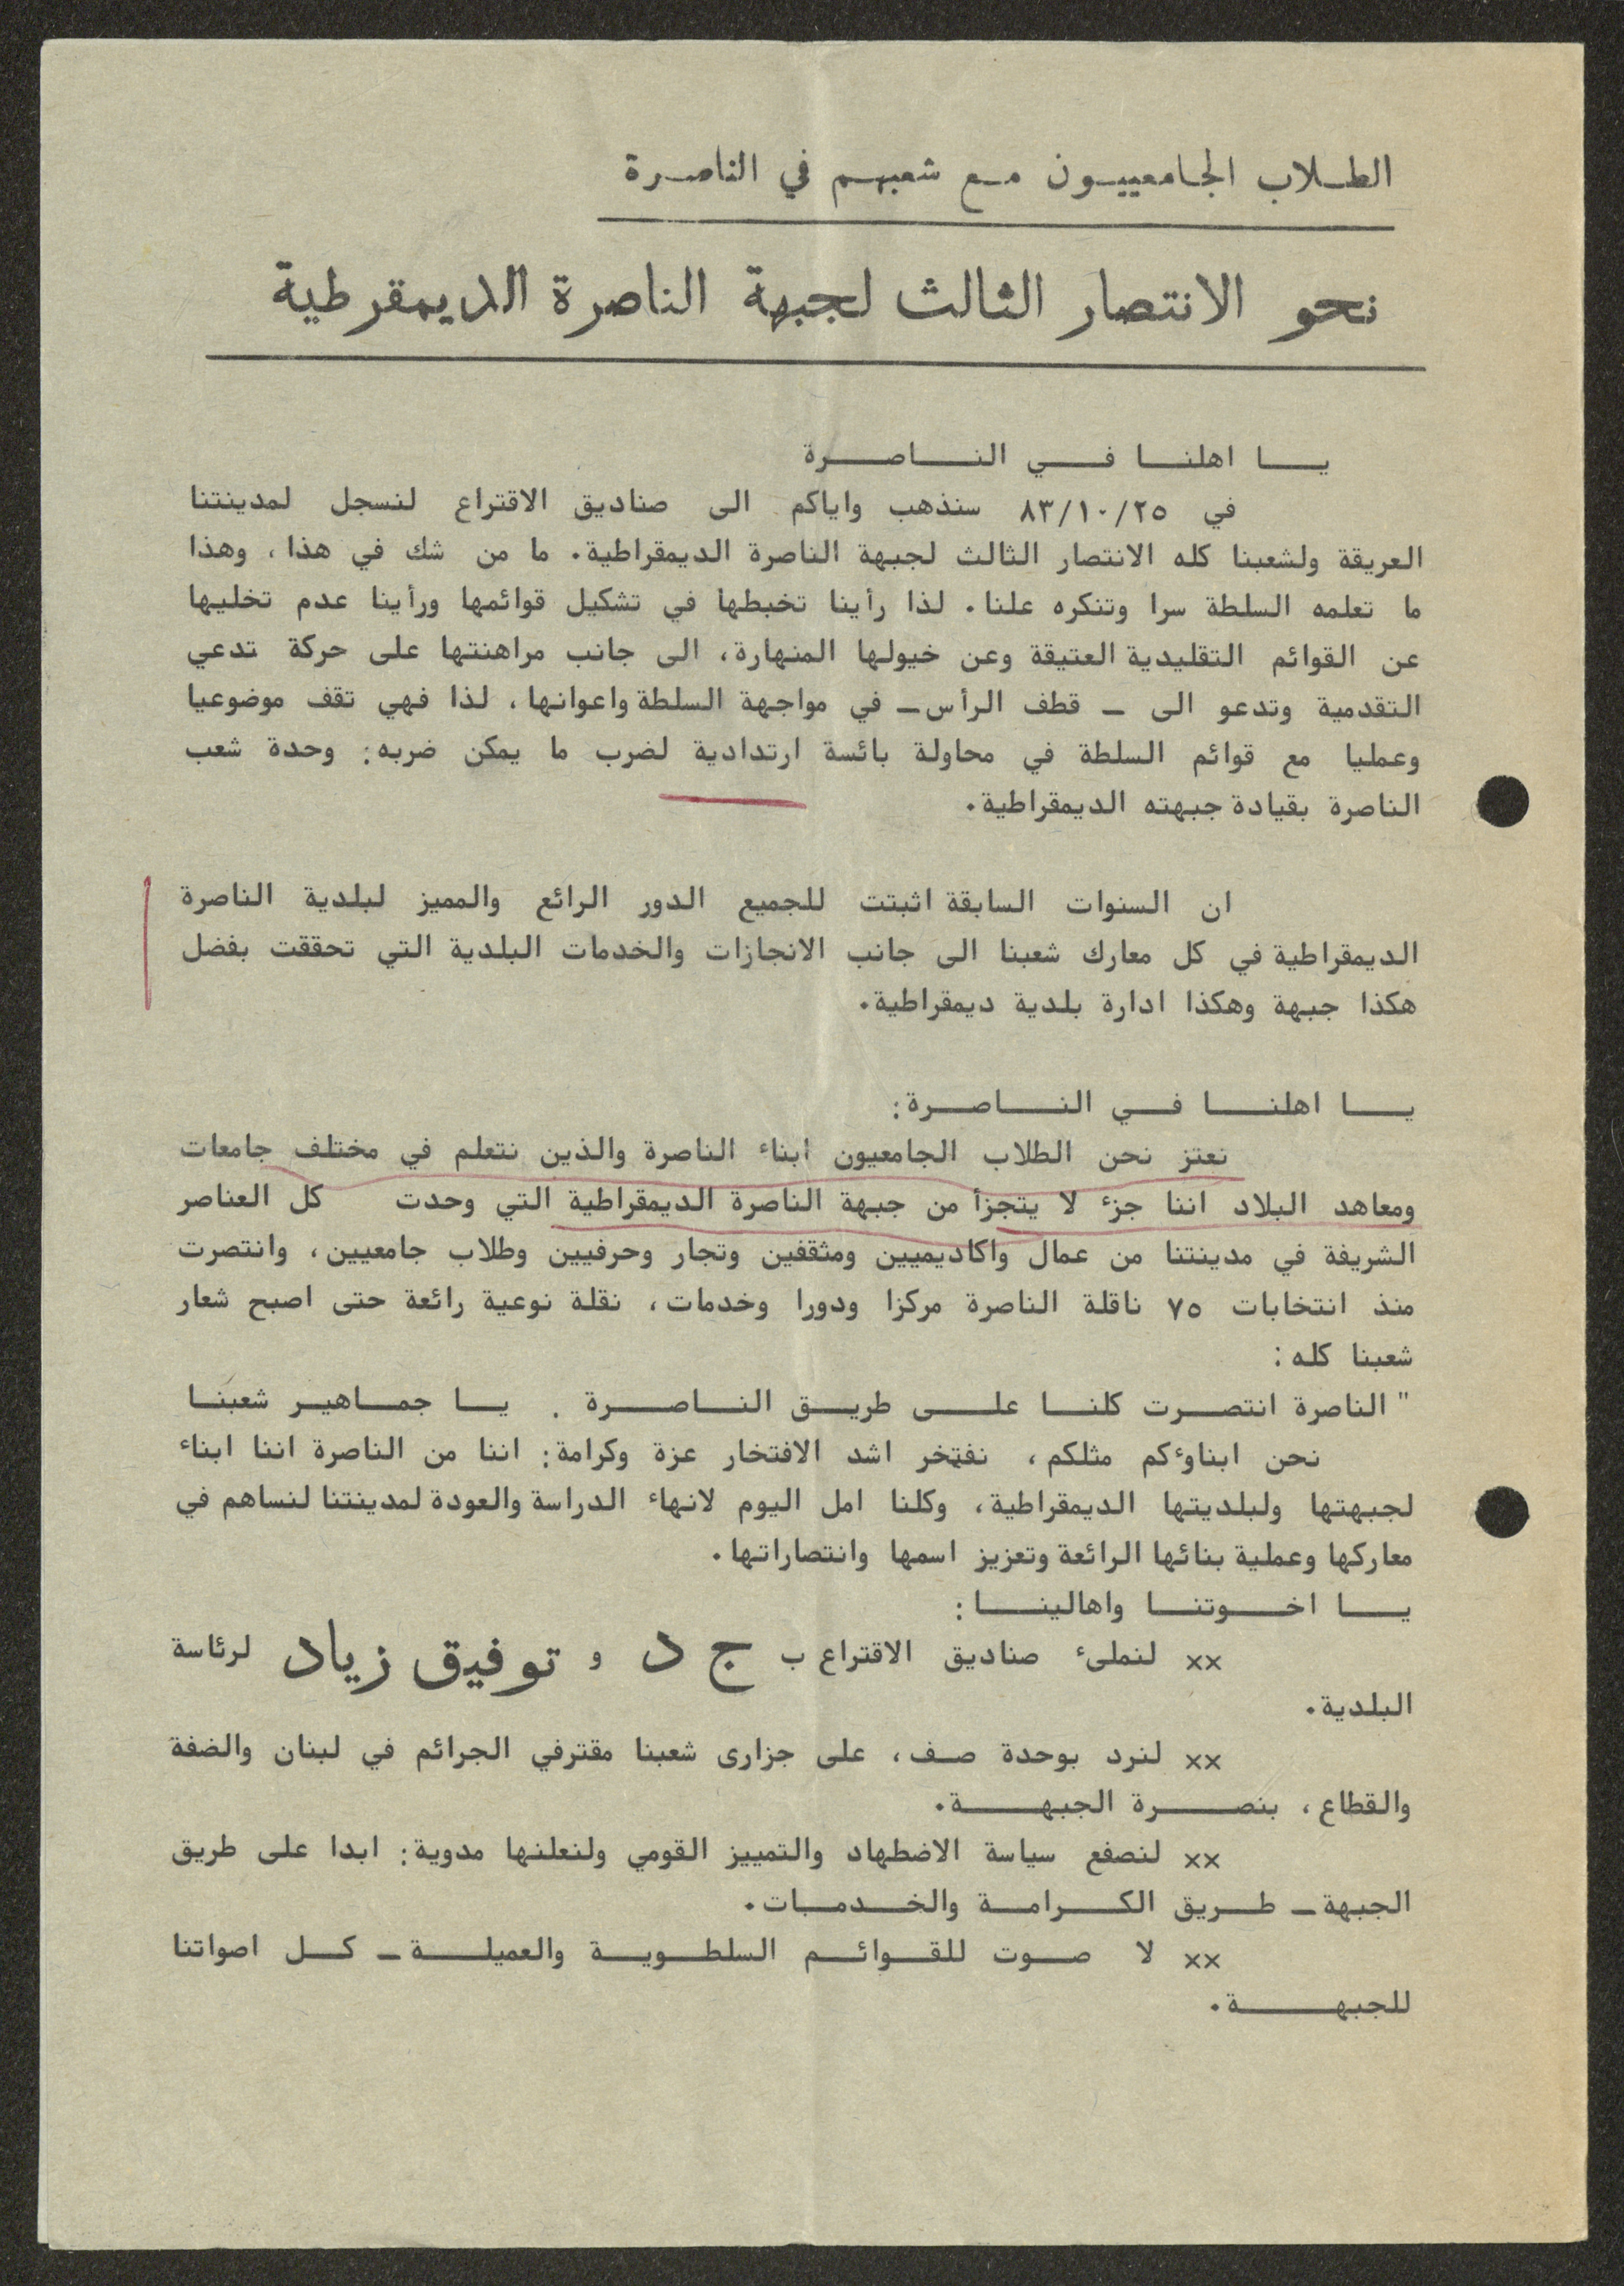 الطلاب الجامعييون مع شعبهم في الناصرة
نحو الانتصار الثالث لجبهة الناصرة الديمقرطية
يا اهلنا في الناصرة
في ٨٣/١٠/٢٥ سنذهب واياكم الى صناديق الاقتراع لنسجل لمدينتنا
العريقة ولشعبنا كله الانتصار الثالث لجبهة الناصرة الديمقراطية. ما من شك في هذا، وهذا
ما تعلمه السلطة سرا وتنكره علنا. لذا رأينا تخبطها في تشكيل قوائمها ورأينا عدم تخليها
عن القوائم التقليدية العتيقة وعن خيولها المنهارة، الى جانب مراهنتها على حركة تدعي
التقدمية وتدعو الى ـ قطف الرأس ـ في مواجهة السلطة واعوانها، لذا فهي تقف موضوعيا
وعمليا مع قوائم السلطة في محاولة بائسة ارتدادية لضرب ما يمكن ضربه: وحدة شعب
الناصرة بقيادة جبهته الديمقراطية.
ان السنوات السابقة اثبتت للجميع الدور الرائع والمميز لبلدية الناصرة
الديمقراطية في كل معارك شعبنا الى جانب الانجازات والخدمات البلدية التي تحققت بفضل
هكذا جبهة وهكذا ادارة بلدية ديمقراطية.
يا اهلنا في الناصرة:
نعتز نحن الطلاب الجامعيون ابناء الناصرة والذين نتعلم في مختلف جامعات
ومعاهد البلاد اننا جزء لا يتجزأ من جبهة الناصرة الديمقراطية التي وحدت كل العناصر
الشريفة في مدينتنا من عمال واكاديميين ومثقفين وتجار وحرفيين وطلاب جامعيين، وانتصرت
منذ انتخابات ٧٥ ناقلة الناصرة مركزا ودورا وخدمات، نقلة نوعية رائعة حتى اصبح شعار
شعبنا كله:
" الناصرة انتصرت كلنا على طريق الناصرة . يا جماهير شعبنا
نحن ابناوءكم مثلكم، نفتخر اشد الافتخار عزة وكرامة: اننا من الناصرة اننا ابناء
لجبهتها ولبلديتها الديمقراطية، وكلنا امل اليوم لانهاء الدراسة والعودة لمدينتنا لنساهم في
معاركها وعملية بنائها الرائعة وتعزيز اسمها وانتصاراتها.
يا اخوتنا واهالينا:
×× لنملىء صناديق الاقتراع ب ج د و توفيق زياد لرئاسة
البلدية.
×× لنرد بوحدة صف، على جزارى شعبنا مقترفي الجرائم في لبنان والضفة
والقطاع، بنصرة الجبهة.
×× لنصفع سياسة الاضطهاد والتمييز القومي ولنعلنها مدوية: ابدا على طريق
الجبهة ـ طريق الكرامة والخدمات.
×× لا صوت للقوائم السلطوية والعميلة ـ كل اصواتنا
للجبهة.